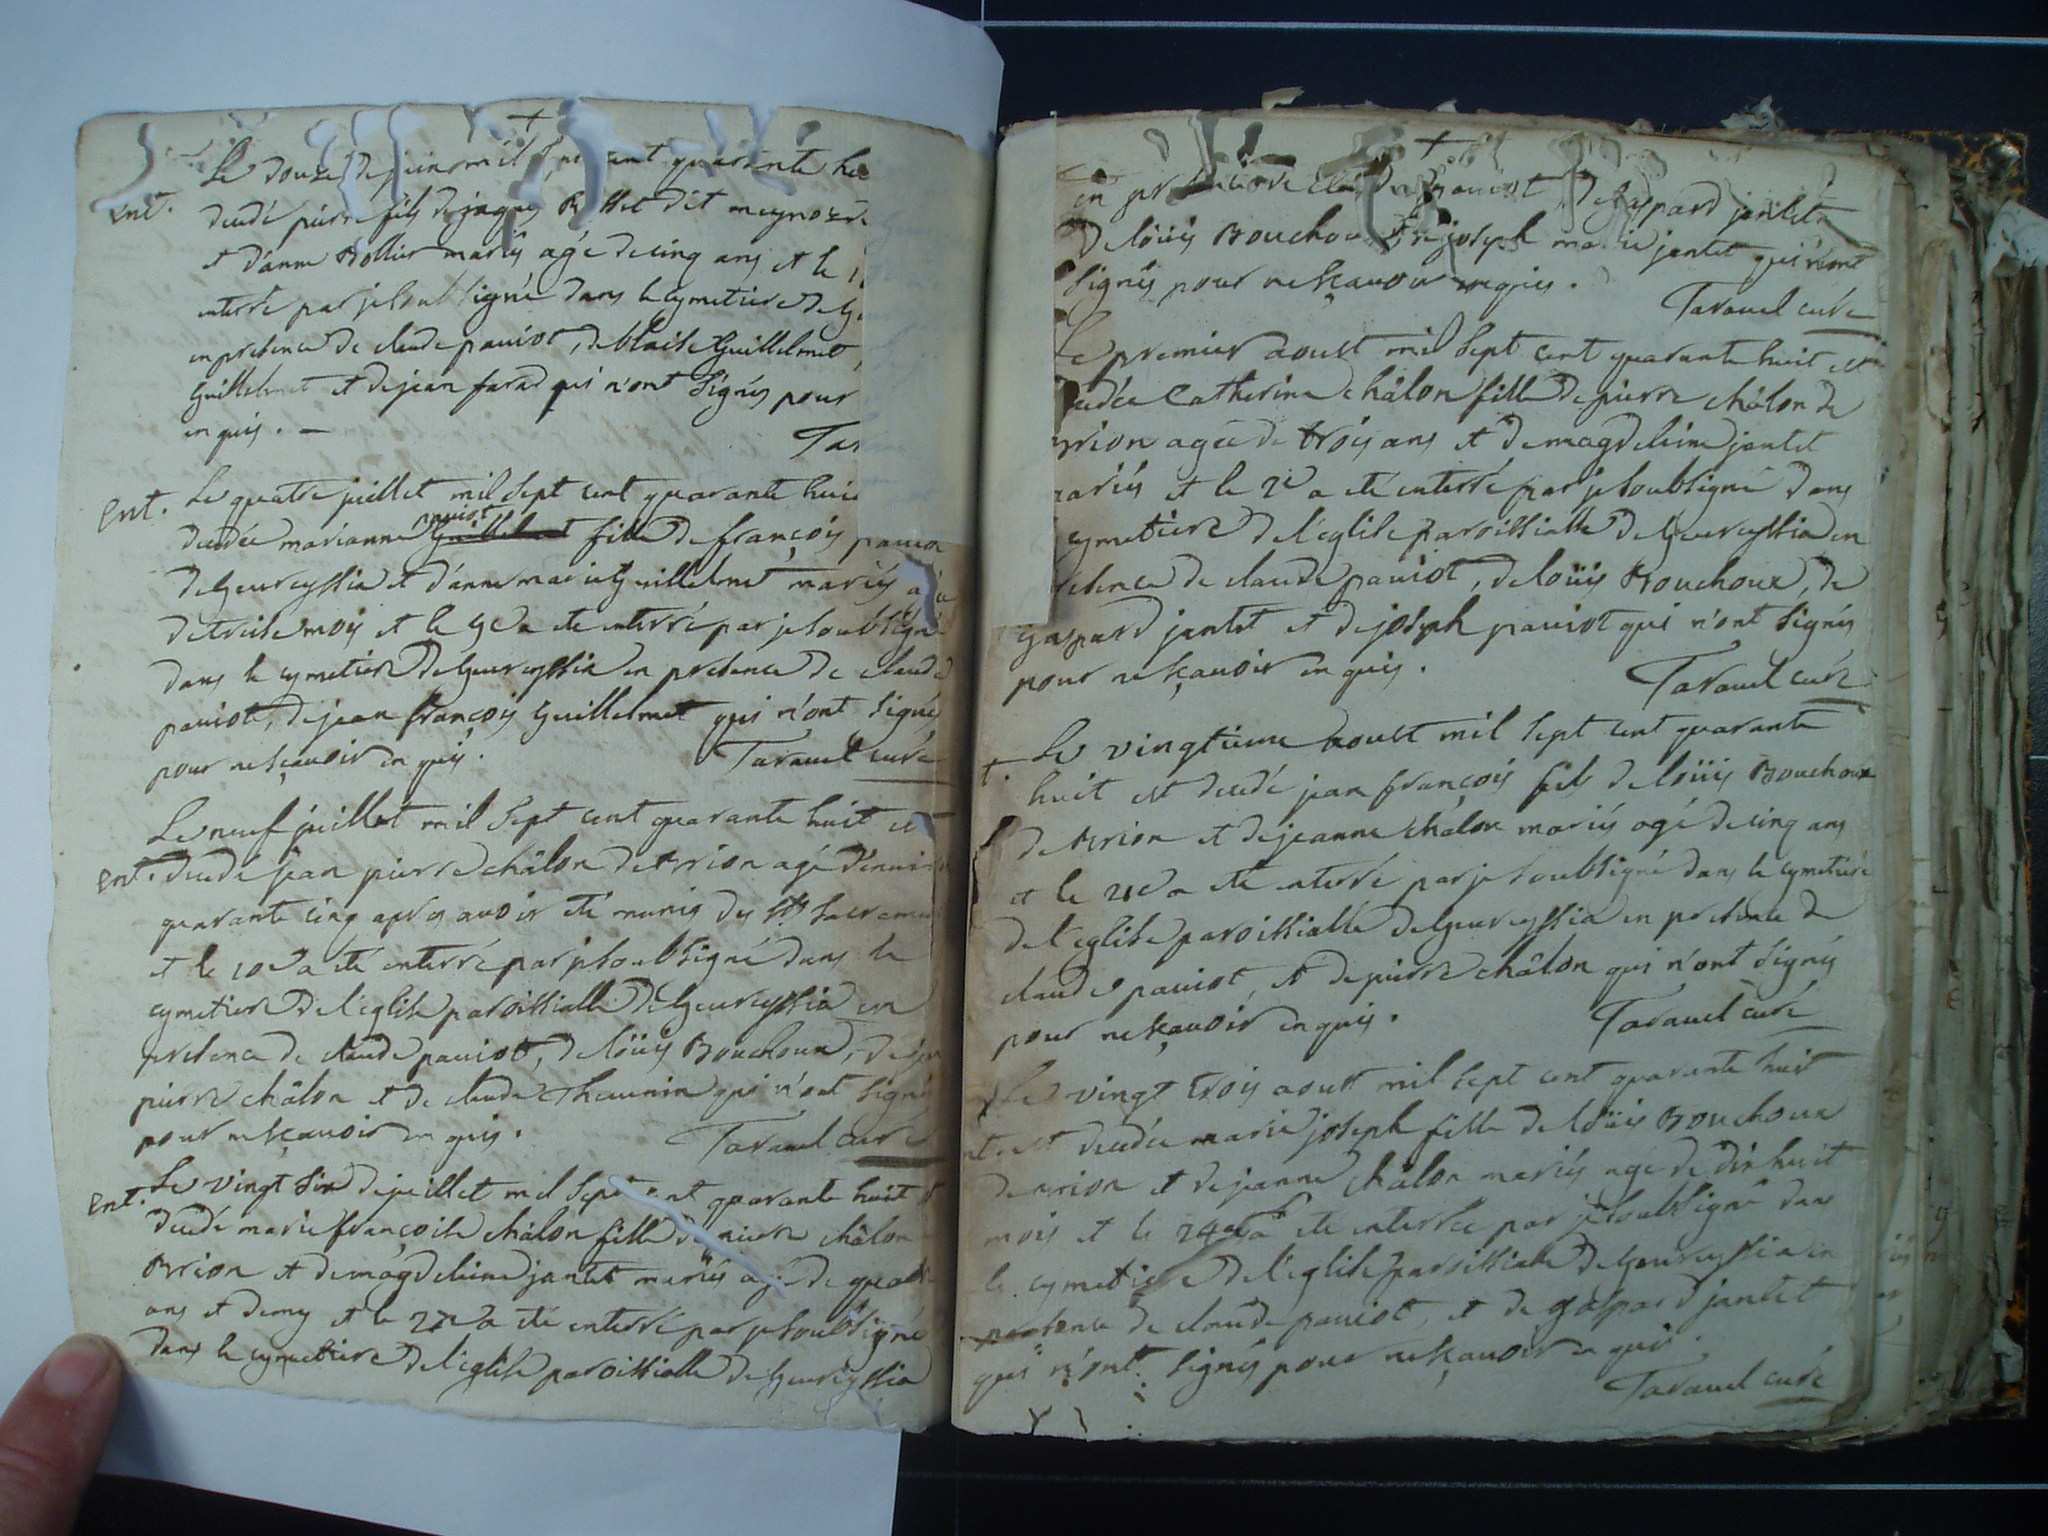 Le douze de juin mil sept cent quarante hu
Ent.
decedé pierre fils de jaques Rosset dit meynoz de
et d'anne Rollier mariés agé de cinq ans et le
enterré par je soubsigné dans le cymetiere de G
en presence de claude paviot, de blaise Guillelmet,
Guillelmet et de jean farad qui n'ont signés pour
enquis. –
Tar
Ent. Le quatre juillet mil sept cent quarante huit
paviot
decedée marianne Guillelmet fille de françois paviot
de Gevreyssia et d'anne marie Guillelmet mariés agée
de treise mois et le 5e a eté enterré par je soubsigné
dans le cymetiere de Gevreyssia en presence de claude
paviot, de jean françois Guillelmet qui n'ont signés
pour ne sçavoir enquis.
Taravel curé
Le neuf juillet mil sept cent quarante huit est
Ent. decedé jean pierre châlon de Arion agé d'envir
quarante cinq apres avoir eté munis des Sts sacrame
et le 10e a eté enterré par je soubsigné dans le
cymetiere de l'eglise paroissialle de Gevreyssia en
presence de claude paviot, de loüis Bouchoux, de jea
pierre châlon et de claude Thevenin qui n'ont signés
pour ne sçavoir enquis.
Taravel curé
Ent. Le vingt six de juillet mil sept cent quarante huit
decedé marie françoise châlon fille de pierre châlon
Arion et de magdeleine jantet mariés agé de quatre
ans et demy et le 27e a eté enterré par je soubsigné
dans le cymetiere de l'eglise paroissialle de Gevreyssia
en presence de claude paviot, de gaspard jantet
de loüis Bouchoux et de joseph marie jantet qui n'ont
signés pour ne sçavoir enquis.
Taravel curé
Le premier aoust mil sept cent quarante huit est
decedée Catherine châlon fille de pierre châlon de
Arion agée de trois ans et de magdeleine jantet
mariés et le 2e a eté enterré par je soubsigné dans
cymetiere de l'eglise paroissialle de Gevreyssia en
presence de claude paviot, de loüis Bouchoux, de
gaspard jantet et de joseph paviot qui n'ont signés
pour ne sçavoir enquis.
Taravel curé
t. Le vingtieme aoust mil sept cent quarante
huit est decedé jean françois fils de loüis Bouchoux
de Arion et de jeanne châlon mariés agé de cinq ans
et le 21e a eté enterré par je soubsigné dans le cymetiere
de l'eglise paroissialle de Gevreyssia en presence de
claude paviot, et de pierre châlon qui n'ont signés
pour ne sçavoir enquis.
Taravel curé
Le vingt trois aoust mil sept cent quarante huit
nt. est decedée marie joseph fille de loüis Bouchoux
de Arion et de jeanne châlon mariés agé de dix huit
mois et le 24e a eté enterrée par je soubsigné dans
le cymetiere de l'eglise paroissialle de Gevreyssia en
presence de claude paviot, et de gaspard jantet
qui n'ont signés pour ne sçavoir enquis.
Taravel curé